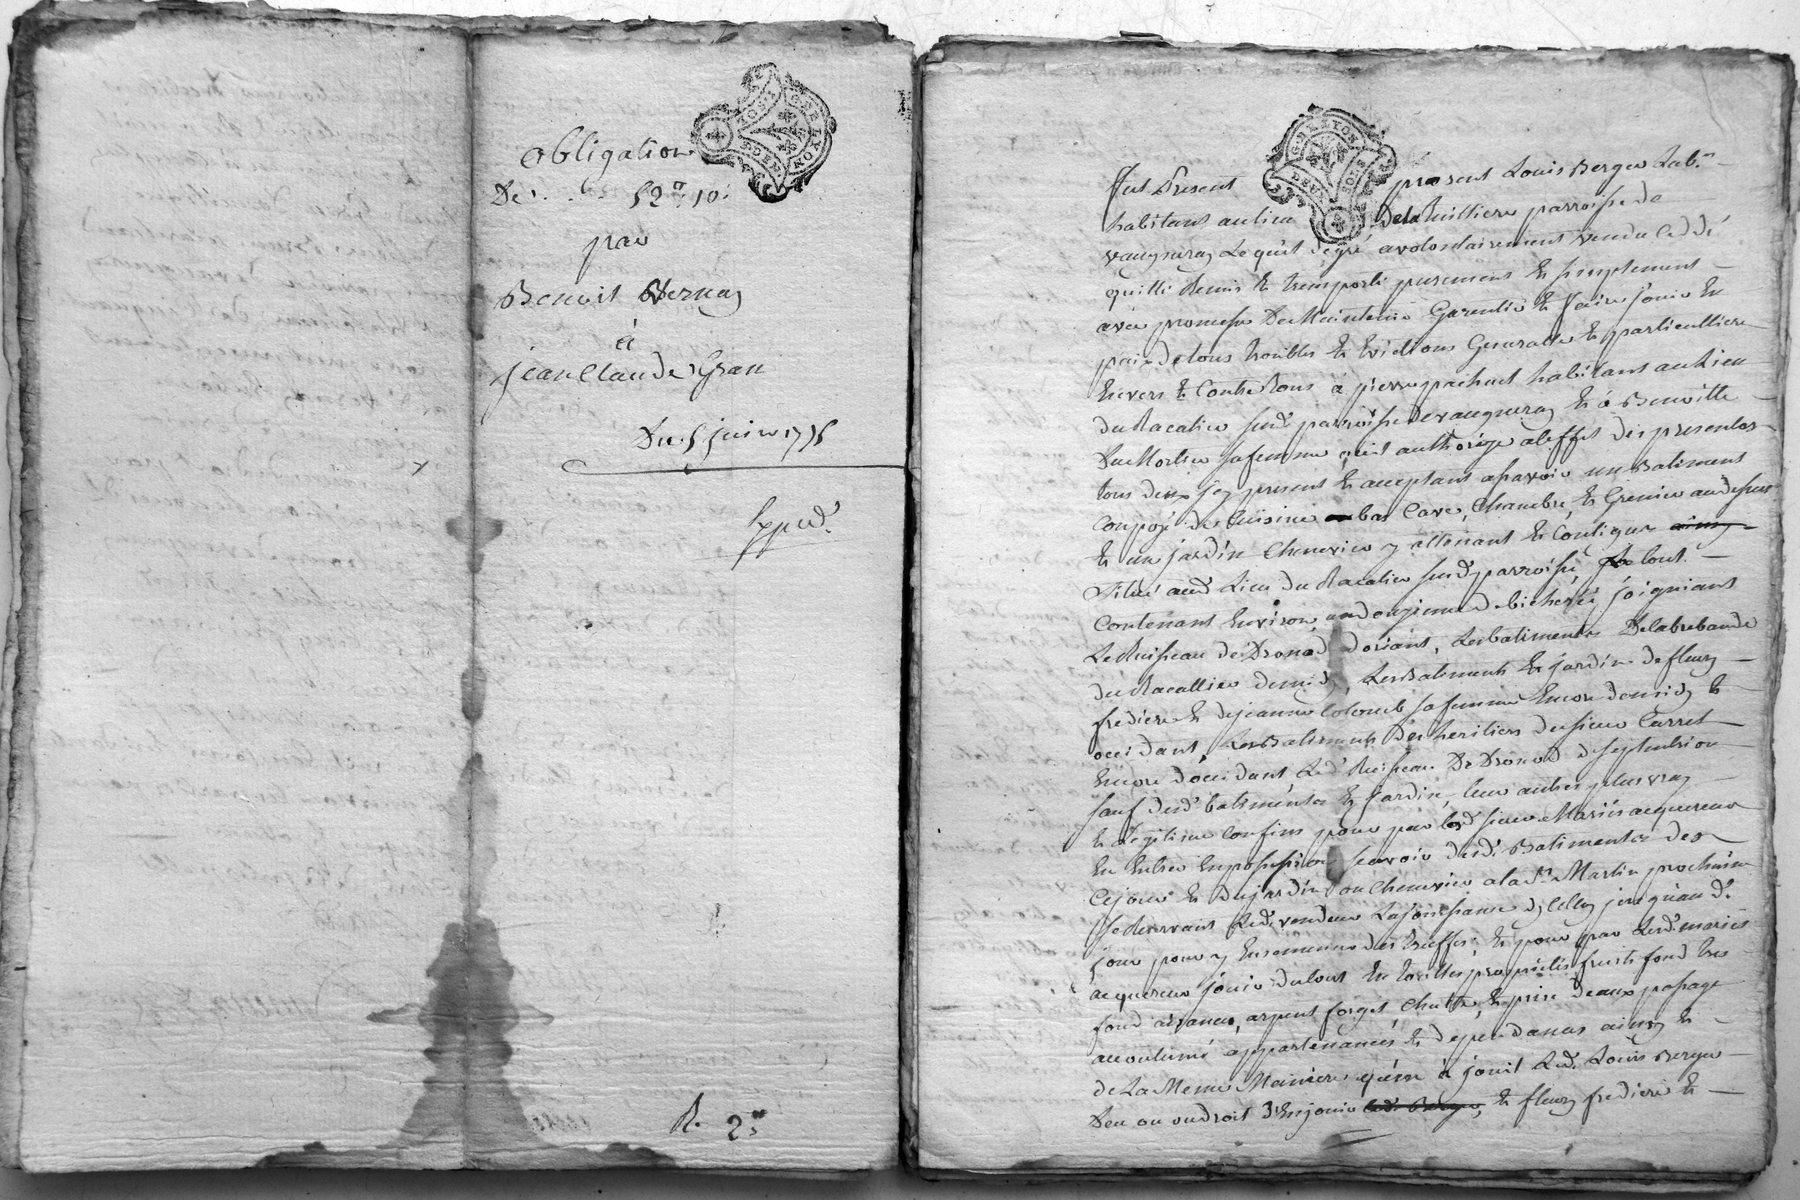 Obligation
De 52# 10s
par
Benoist Vernay
à
jean Claude Gran
Du 5 juin 1775
Expedé
R. 2
GNE LYON
DEUX SOLS
Fut Present present Louis Berger Labr
habitant au lieu dela Milliere parroisse de
vaugneray Lequel de gré a volontairement vendu Cedé
quitté Remis Et transporté purement Et simplement
avec promesse De Maintenir Garentir Et faire jouir En
paix de tous troubles Et Evictions Generalle Et particulliere
Envers Et Contre tous à pierre pachut habitant au Lieu
du Racalier susd parroisse de vaugneray Et à Benoitte
Du Mortier sa femme qu'il authorise a leffet des presentes
tous deux jcy present Et acceptant a savoir un Batiment
Composé de Cuisine bas Cave, Chambre, Et Grenier au dessus
Et un jardin Chenevier y attenant Et Contigue
Situé aud Lieu du Racalier susd parroisse, le tout
Contenant Environ bicherée joignant
Le Ruisseau de Dronod dorient, Les batiments
du Racallier de midy, Les Batiments Et jardin de fleury
fredière Et de jeanne Colomb sa femme Encore de midy Et
occidant, Les Batiments des heritiers du sieur Carret
Encore d'occidant Led Ruisseau De Dronod de septentrion
sauf desd batiments Et jardin, leur autres plus vray
Et Legitime Confins pour par lesd sieur Mariés acquereur
En Entrer En possession scavoir desd Batiments des
Cejour Et du jardin ou Chenevier a la st Martin prochaine
se reservant Led vendeur La jouissance d'jcelluy jusqu'aud
jour pour y Ensemencer des truffes; Et pour par Lesd mariés
acquereur jouir du tout En toutes proprietés fruits fond tres
fond aisances, arpent forget, Chutte, Et prise deaux passage
accoutumé appartenances Et dependances ainsy Et
de La Meme Maniere qu'en à jouit Led Louis Berger
Deu ou en droit D'En jouir led Berger, Et fleury fredière Et